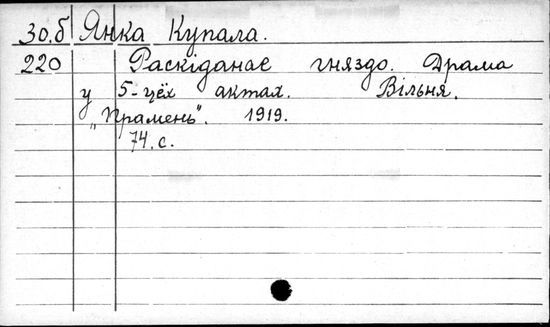 30.б Янка Купала.
220 Раскіданае гняздо. Драма
у 5-цёх актах. Вільня.
„Прамень". 1919.
74.с.